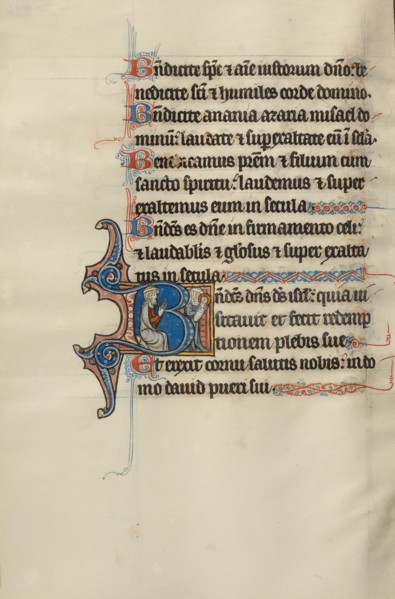 Bndicite sp̄e ⁊ aīe iustorum dn̄o: be
nedicite sc̄i ⁊ humiles corde domino.
Bn̄dicite anania azaria misael do
minū: laudate ⁊ supexaltate eū ī sc̄la.
Benedicamus pr̄em ⁊ filium cum
sancto spiritu: laudemus ⁊ super
exaltemus eum in secula.
Bn̄dc̄s es dn̄e in firmamento celi:
⁊ laudabilis ⁊ gl̄osus ⁊ super exalta
tus in secula.
Bn̄dc̄s dn̄s ds̄ isrl̄: quia ui
sitauit et fecit redemp
tionem plebis sue.
Et erexit cornu salutis nobis: in do
mo dauid pueri sui.